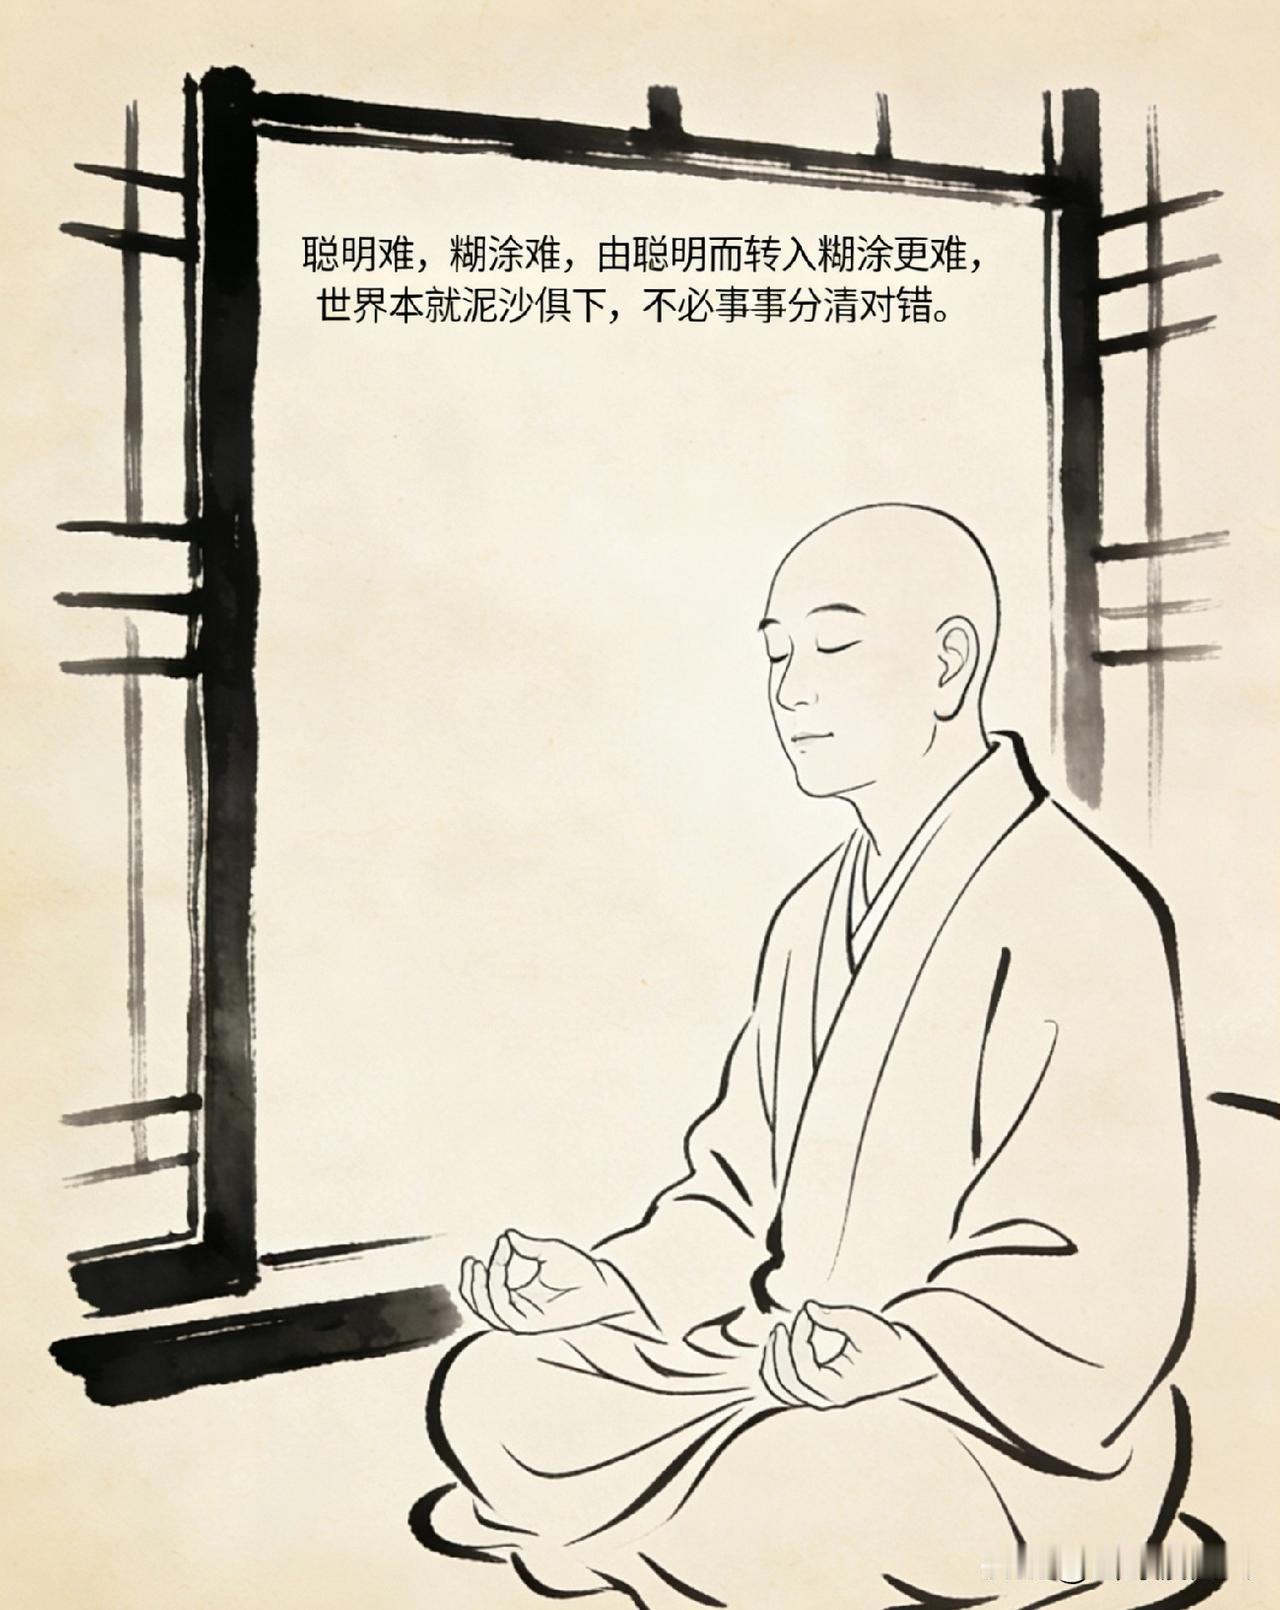 聪明难，糊涂难，由聪明而转入糊涂更难，
世界本就泥沙俱下，不必事事分清对错。